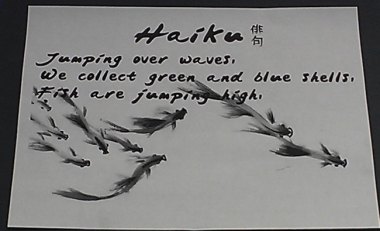 Haiku 俳句
Jumping over waves.
We collect green and blue shells.
Fish are jumping high.